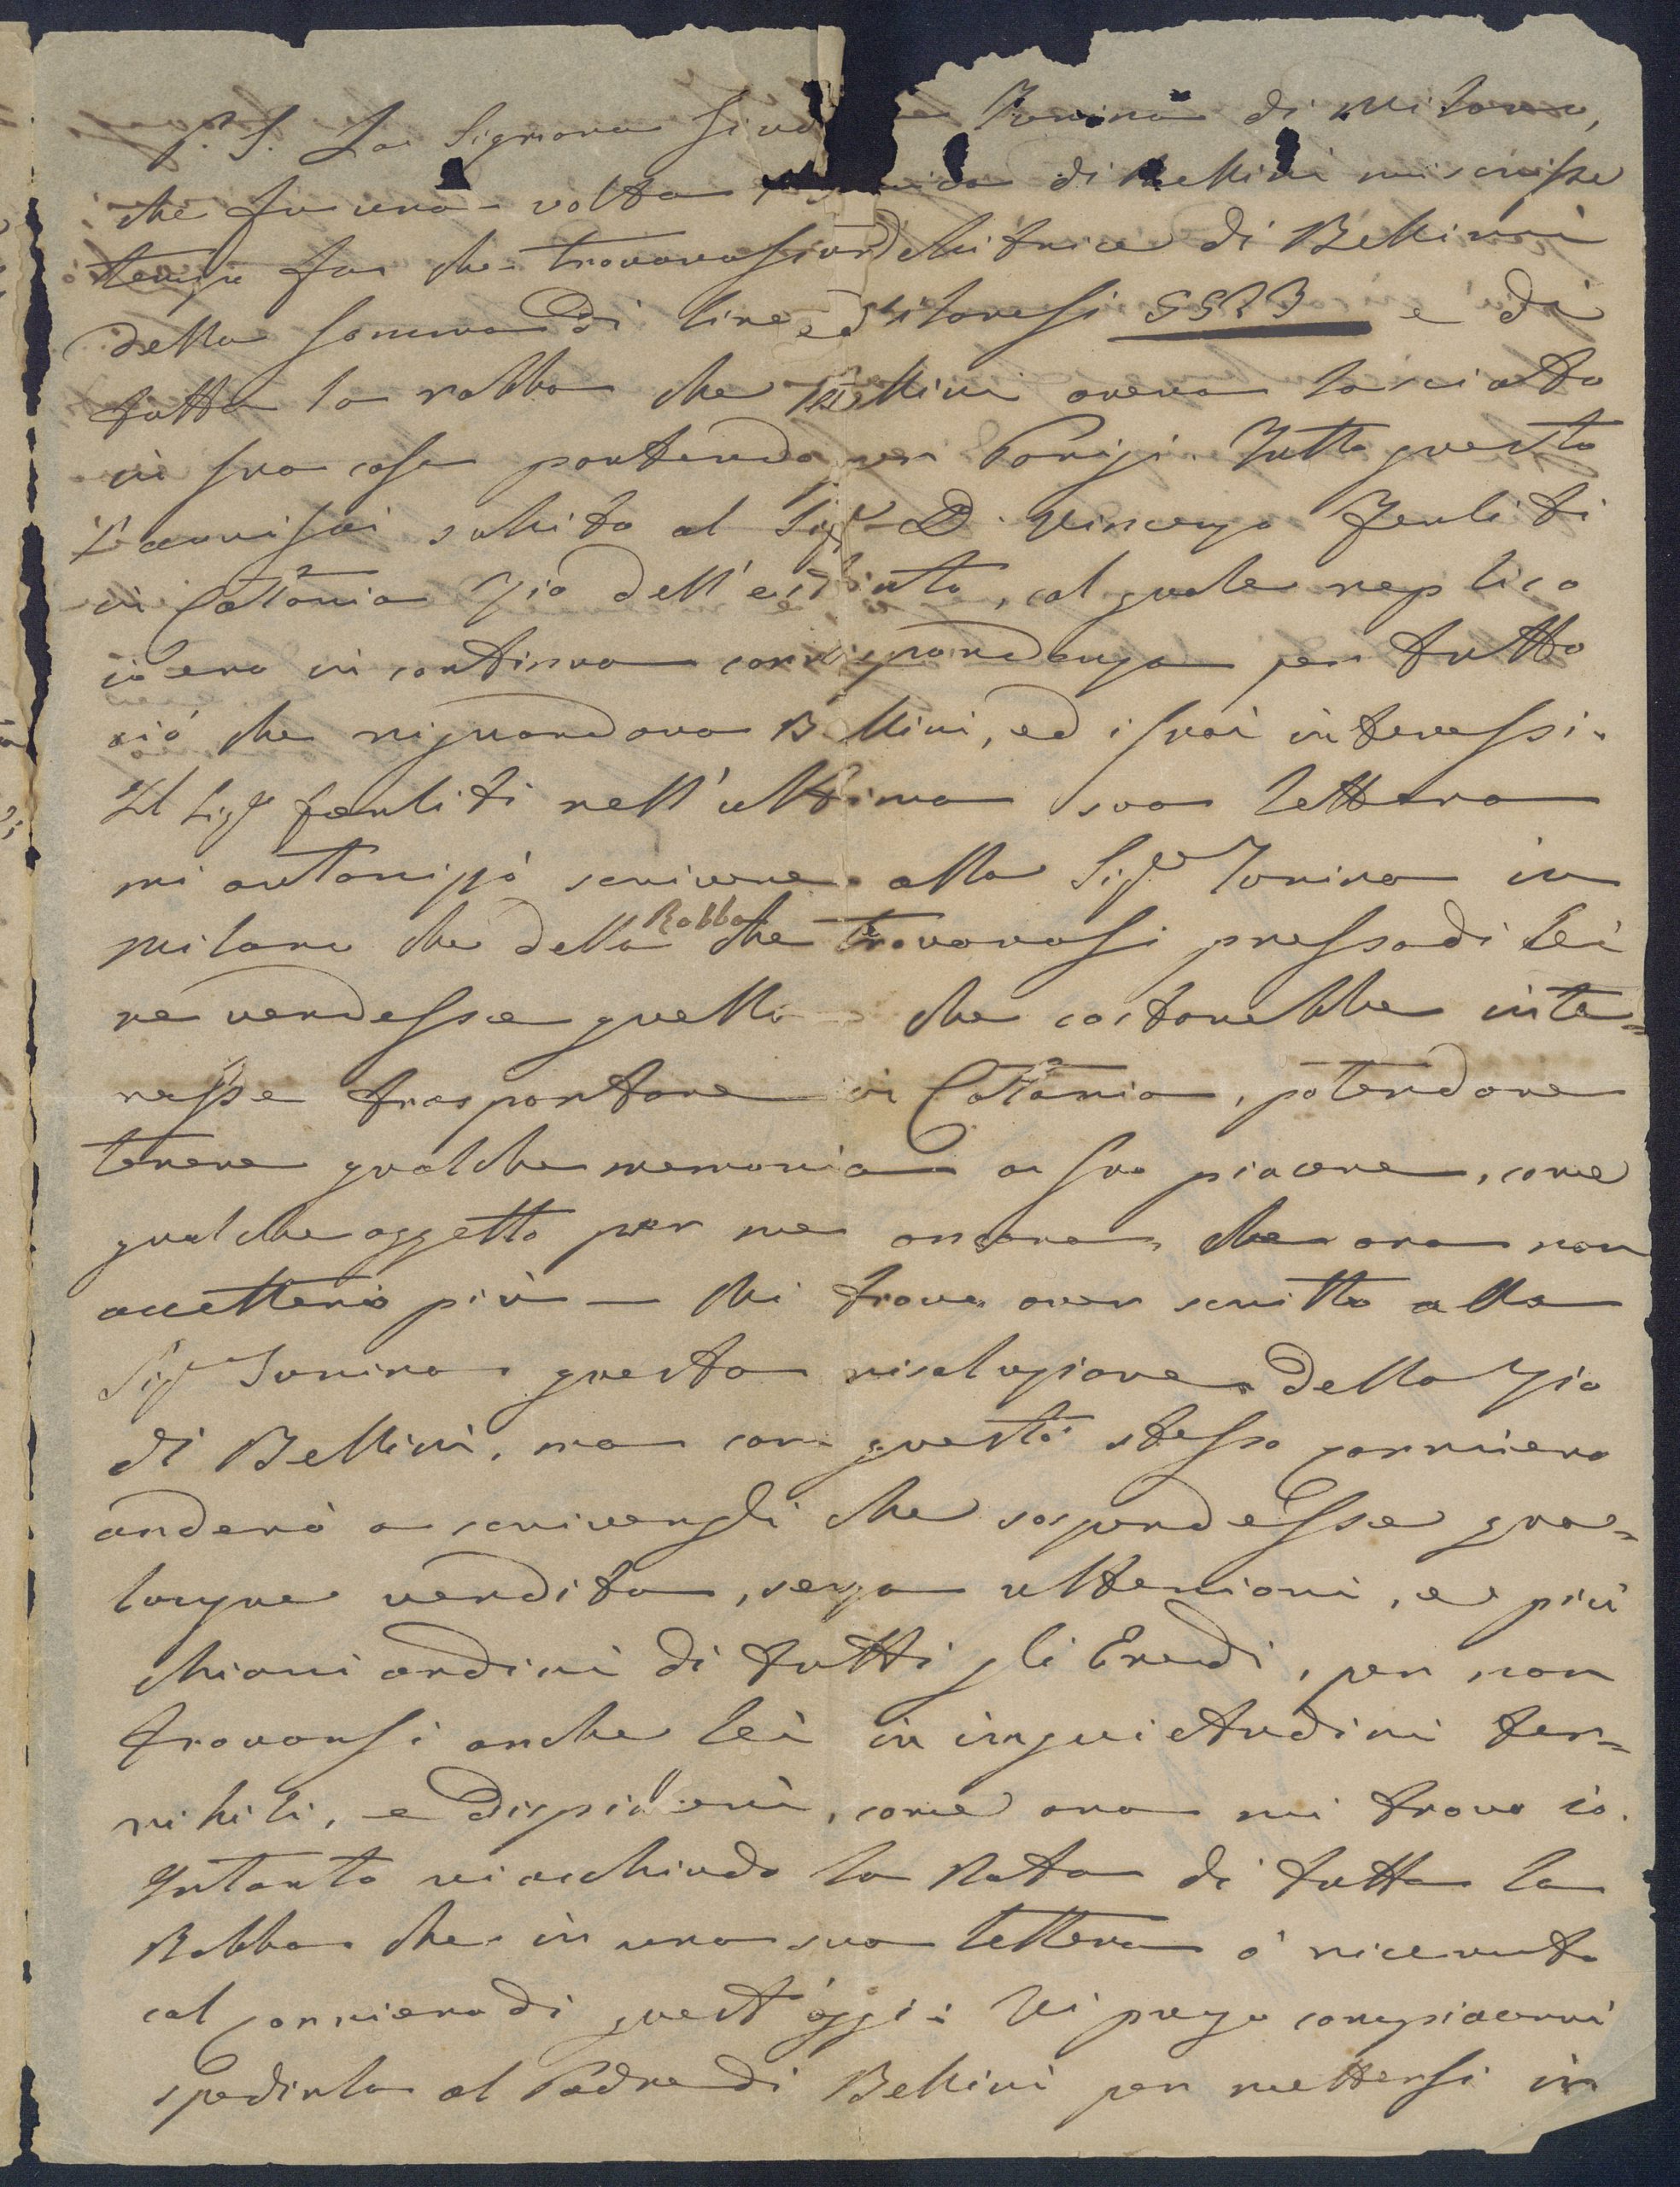 P. S. La Signora Giud Turina di Milano,
che fu una volta di Bellini mi scrisse
tempo fa che trovavasi debitrice di Bellini
della somma di lire milanesi e di
tutta la robba che Bellini aveva lasciato
in sua casa partendo per Parigi. Tutto questo
l'avvisai subito al Sigr D. Vincenzo Ferliti
in Catania Zio dell'estinto, col quale replico
io ero in continua corrispondenza per tutto
ciò che riguardava Bellini, ed i suoi interessi.
Il Sigr Ferliti nell'ultima sua lettera
mi autorizzò scrivere alla Sigra Turina in
Milano che della Robba che trovavasi presso di lei
ne vendesse quella che costarebbe inte=
resse trasportare in Catania, potendone
tenere qualche memoria a suo piacere, come
qualche oggetto per me ancora, che ora non
accetterò più — Mi trovo aver scritto alla
Sigra Turina questa risoluzione dello Zio
di Bellini, ma con questo stesso corriero
anderò a scrivergli che sospendesse qua=
lunque vendita, senza ulteriori, e più
chiari ordini di tutti gli Eredi, per non
trovarsi anche lei in inquietudini ter=
ribili, e dispiaceri, come ora mi trovo io.
Intanto vi acchiudo la Nota di tutta la
Robba che in una sua lettera ò ricevuto
col corriero di quest'oggi: Vi prego compiacervi
spedirla al Padre di Bellini per mettersi in